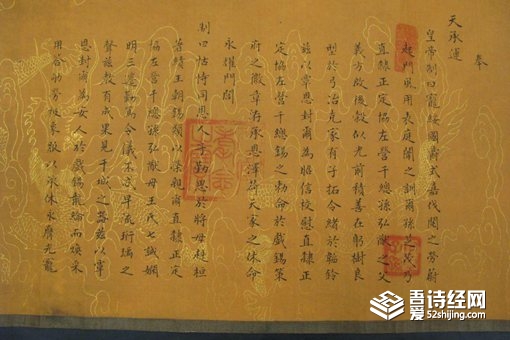 奉
天承運
皇帝制曰寵綏國爵式嘉伐閱之勞蔚
起門風用表庭闈之訓爾孫文茂乃
直隸正定協左營千總孫弘猷之父
義方啟後穀似光前積善在躬樹良
型於弓冶克家有子拓令緒於韜鈐
茲以覃恩封爾為昭信校尉直隸正
定協左營千總錫之勅命於戲錫策
府之徽章洊承恩澤荷天家之休命
永耀門閭
制曰怙恃同恩人子勤思於將母赳桓
著績王朝錫類以榮親爾直隸正定
協左營千總孫弘猷母王氏七誡嫻
明三遷勤篤令儀不忒早流珩瑀之
聲慈教有成果見干城之器茲以覃
恩封爾為安人於戲錫龍綸而煥采
用答劬勞被象服以承休永膺光寵
吾诗经网
52shijing.com